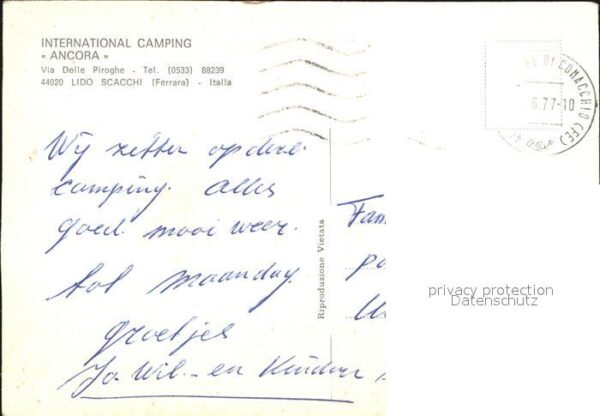 INTERNATIONAL CAMPING
« ANCORA »
Via Delle Piroghe - Tel. (0533) 88239
44020 LIDO SCACCHI (Ferrara) - Italia
DI COMACCHIO (FE)
6.77-10
Wij zitten op deze
camping. Alles
goed. mooi weer.
tot maandag.
groetjes
Jo Wil - en Kinderen
Riproduzione Vietata
Fam
privacy protection
Datenschutz